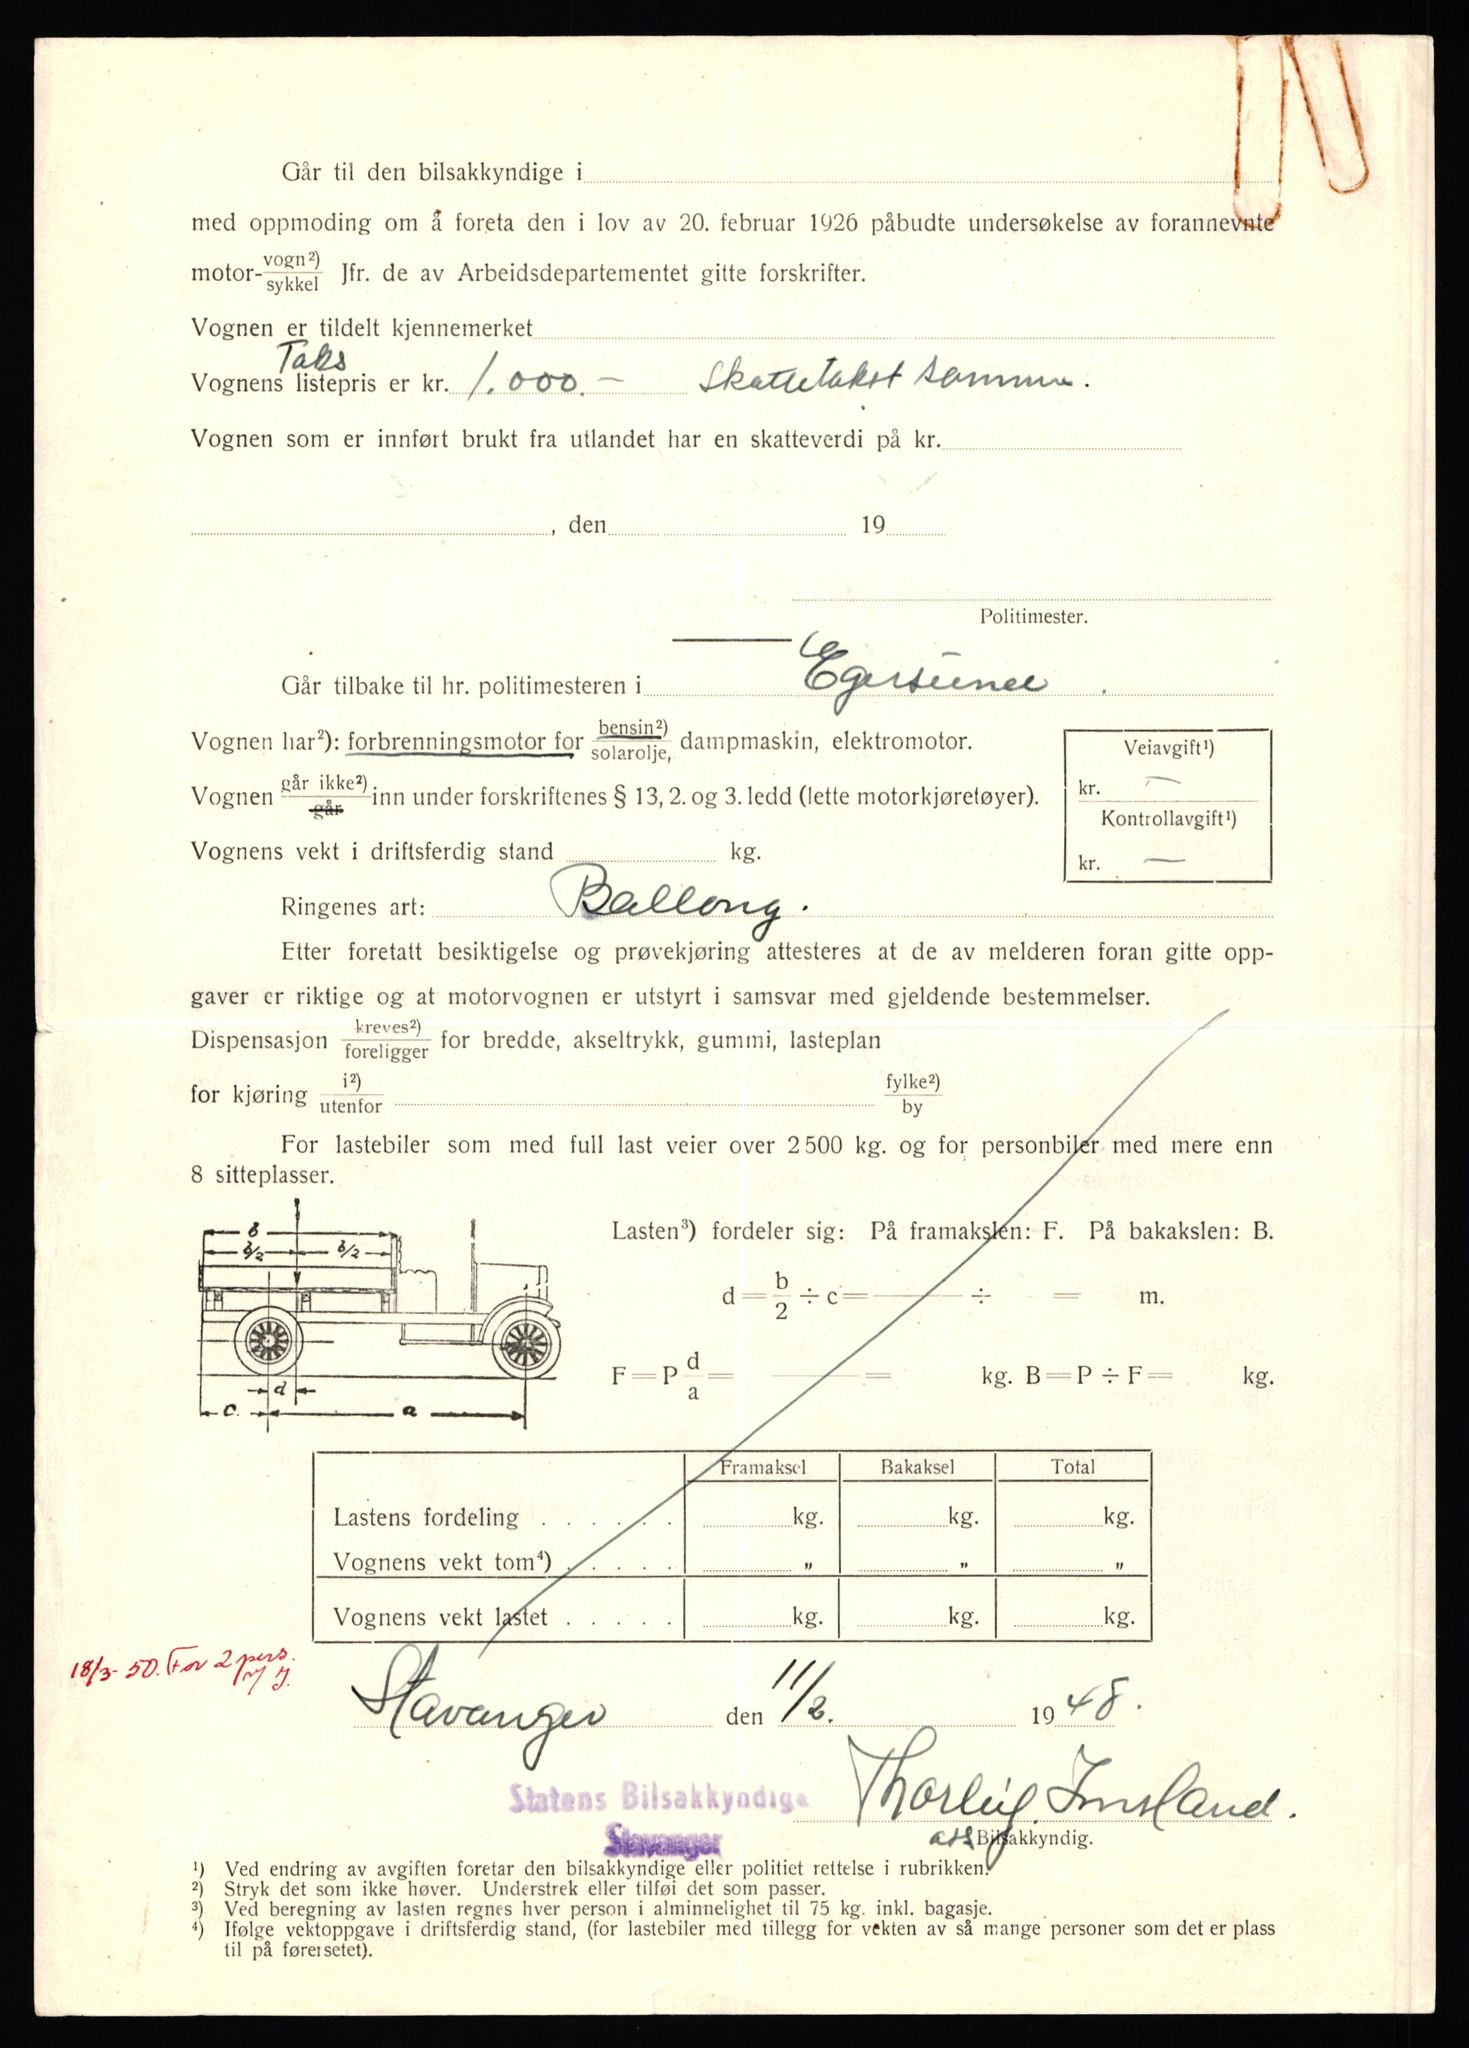 Går til den bilsakkyndige i
med oppmoding om å foreta den i lov av 20. februar 1926 påbudte undersøkelse av forannevnte
motor- vogn²) / sykkel Jfr. de av Arbeidsdepartementet gitte forskrifter.
Vognen er tildelt kjennemerket
Taks
Vognens listepris er kr. 1.000.- Skattetakst samme.
Vognen som er innført brukt fra utlandet har en skatteverdi på kr.
, den 19
Politimester.
Går tilbake til hr. politimesteren i Egersund
Vognen har²): forbrenningsmotor for bensin²) / solarolje, dampmaskin, elektromotor.
Vognen går ikke²) / går inn under forskriftenes § 13, 2. og 3. ledd (lette motorkjøretøyer).
Vognens vekt i driftsferdig stand kg.
Veiavgift¹)
kr. —
Kontrollavgift¹)
kr. —
Ringenes art: Ballong.
Etter foretatt besiktigelse og prøvekjøring attesteres at de av melderen foran gitte opp-
gaver er riktige og at motorvognen er utstyrt i samsvar med gjeldende bestemmelser.
Dispensasjon kreves²) / foreligger for bredde, akseltrykk, gummi, lasteplan
for kjøring i²) / utenfor fylke²) / by
For lastebiler som med full last veier over 2500 kg. og for personbiler med mere enn
8 sitteplasser.
b
b/2 b/2
d
c. a
Lasten³) fordeler sig: På framakslen: F. På bakakslen: B.
d = b/2 ÷ c = ÷ = m.
F = P d/a = = kg. B = P ÷ F = kg.
Framaksel Bakaksel Total
Lastens fordeling . . . . . . kg. kg. kg.
Vognens vekt tom⁴) . . . . . „ „ „
Vognens vekt lastet . . . . . kg. kg. kg.
18/3-50. For 2 pers.
Stavanger den 11/2. 1948.
Statens Bilsakkyndige
Stavanger
Thorleif Imsland.
ass Bilsakkyndig.
¹) Ved endring av avgiften foretar den bilsakkyndige eller politiet rettelse i rubrikken.
²) Stryk det som ikke høver. Understrek eller tilføi det som passer.
³) Ved beregning av lasten regnes hver person i alminnelighet til 75 kg. inkl. bagasje.
⁴) Ifølge vektoppgave i driftsferdig stand, (for lastebiler med tillegg for vekten av så mange personer som det er plass
til på førersetet).